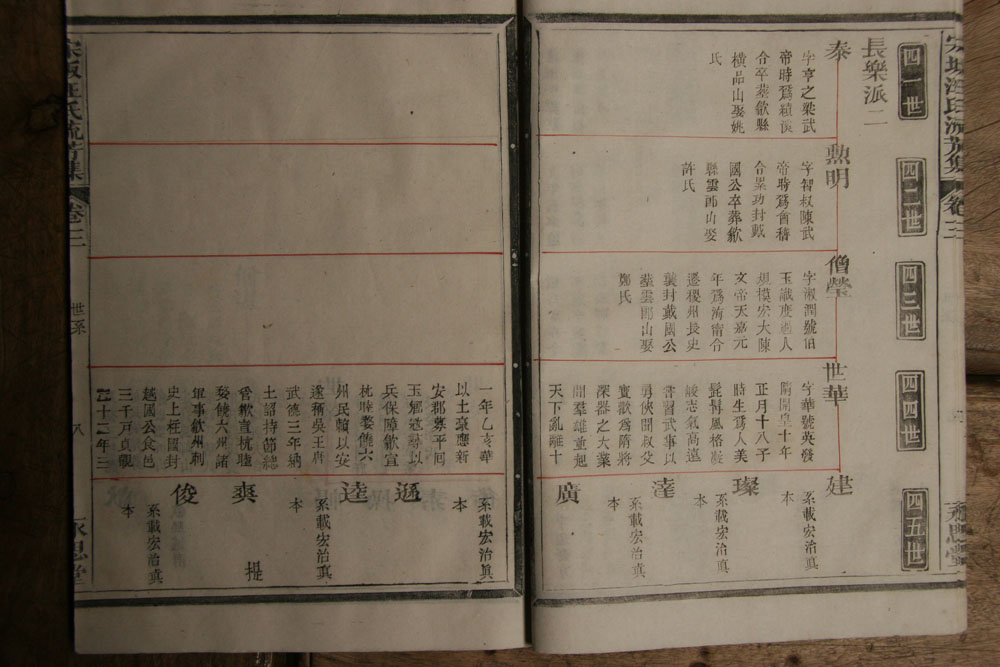 四一世
四二世
四三世
四四世
四五世
長樂派二
泰
字亨之梁武
帝時爲潁溪
合卒葬歙縣
橫品山娶姚
氏
勲明
字習叔陳武
帝時爲會稽
合累功封戴
國公卒葬歙
縣雲郎山娶
許氏
僧瑩
字淑潤號伯
玉識度過人
規模宏大陳
文帝天嘉元
年爲海甯令
遷稷州長史
襲封戴國公
葬雲郎山娶
鄭氏
世華
字華號英發
隋開皇十年
正月十八子
時生爲人美
髭髯風格嚴
峻志氣高遠
嘗習武事以
勇俠聞叔父
寶歡爲隋將
深器之大業
間羣雄並起
天下亂離十
建
系載宏治真
本
璨
系載宏治真
本
達
系載宏治真
本
廣
一年乙亥華
以土豪應新
安郡募平囘
玉鄉以
兵保障歙宣
杭睦婺饒六
州民賴以安
遂稱吳王唐
武德三年納
土詔持節總
管歙宣杭睦
婺饒六州諸
軍事歙州刺
史上柱國封
越國公食邑
三千戸貞觀
二十二年三
系載宏治真
本
遜
逵
系載宏治真
本
爽
提
俊
系載宏治真
本
汪氏流芳集
卷三
世系
八
永思堂